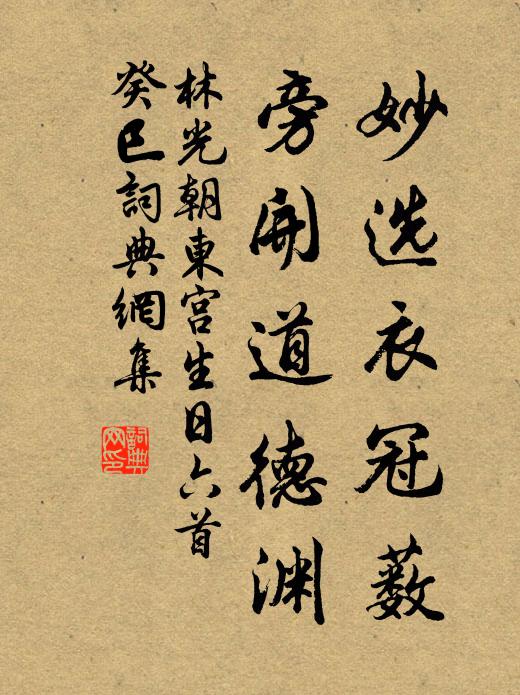 妙选衣冠薮
旁開道德渊
林光朝東宫生日六首
癸巳詞典網集
詞典网印